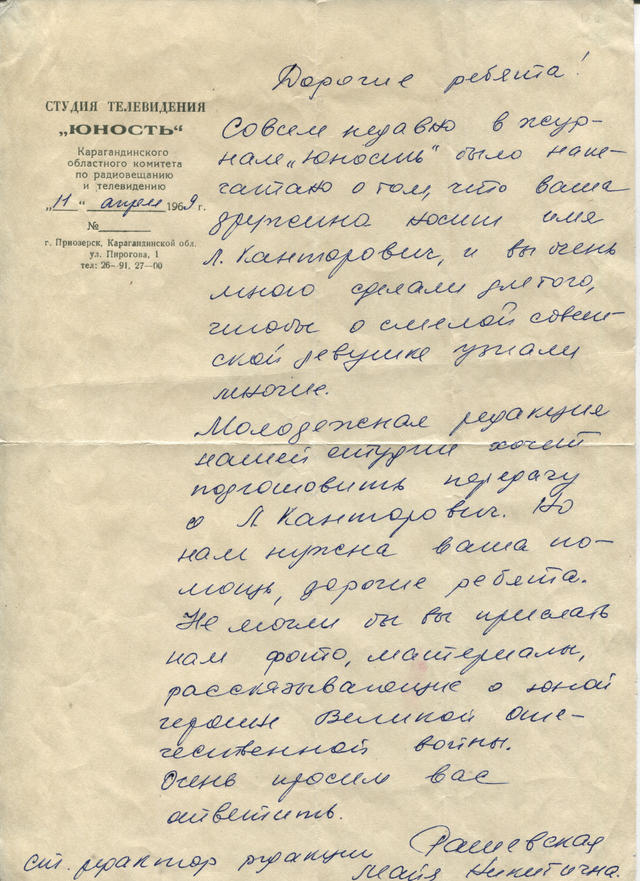 СТУДИЯ ТЕЛЕВИДЕНИЯ
„ЮНОСТЬ“
Карагандинского
областного комитета
по радиовещанию
и телевидению
„11“ апреля 1969 г.
№
г. Приозерск, Карагандинской обл.
ул. Пирогова, 1
тел: 26—91, 27—00
Дорогие ребята!
Совсем недавно в жур-
нале „Юность“ было напе-
чатано о том, что ваша
дружина носит имя
Л. Канторович, и вы очень
много сделали для того,
чтобы о смелой совет-
ской девушке узнали
многие.
Молодежная редакция
нашей студии хочет
подготовить передачу
о Л Канторович. Но
нам нужна ваша по-
мощь, дорогие ребята.
Не могли бы вы прислать
нам фото, материалы,
рассказывающие о юной
героине Великой Оте-
чественной войны.
Очень просим вас
ответить.
ст. редактор редакции Рашевская
Майя Никитична.